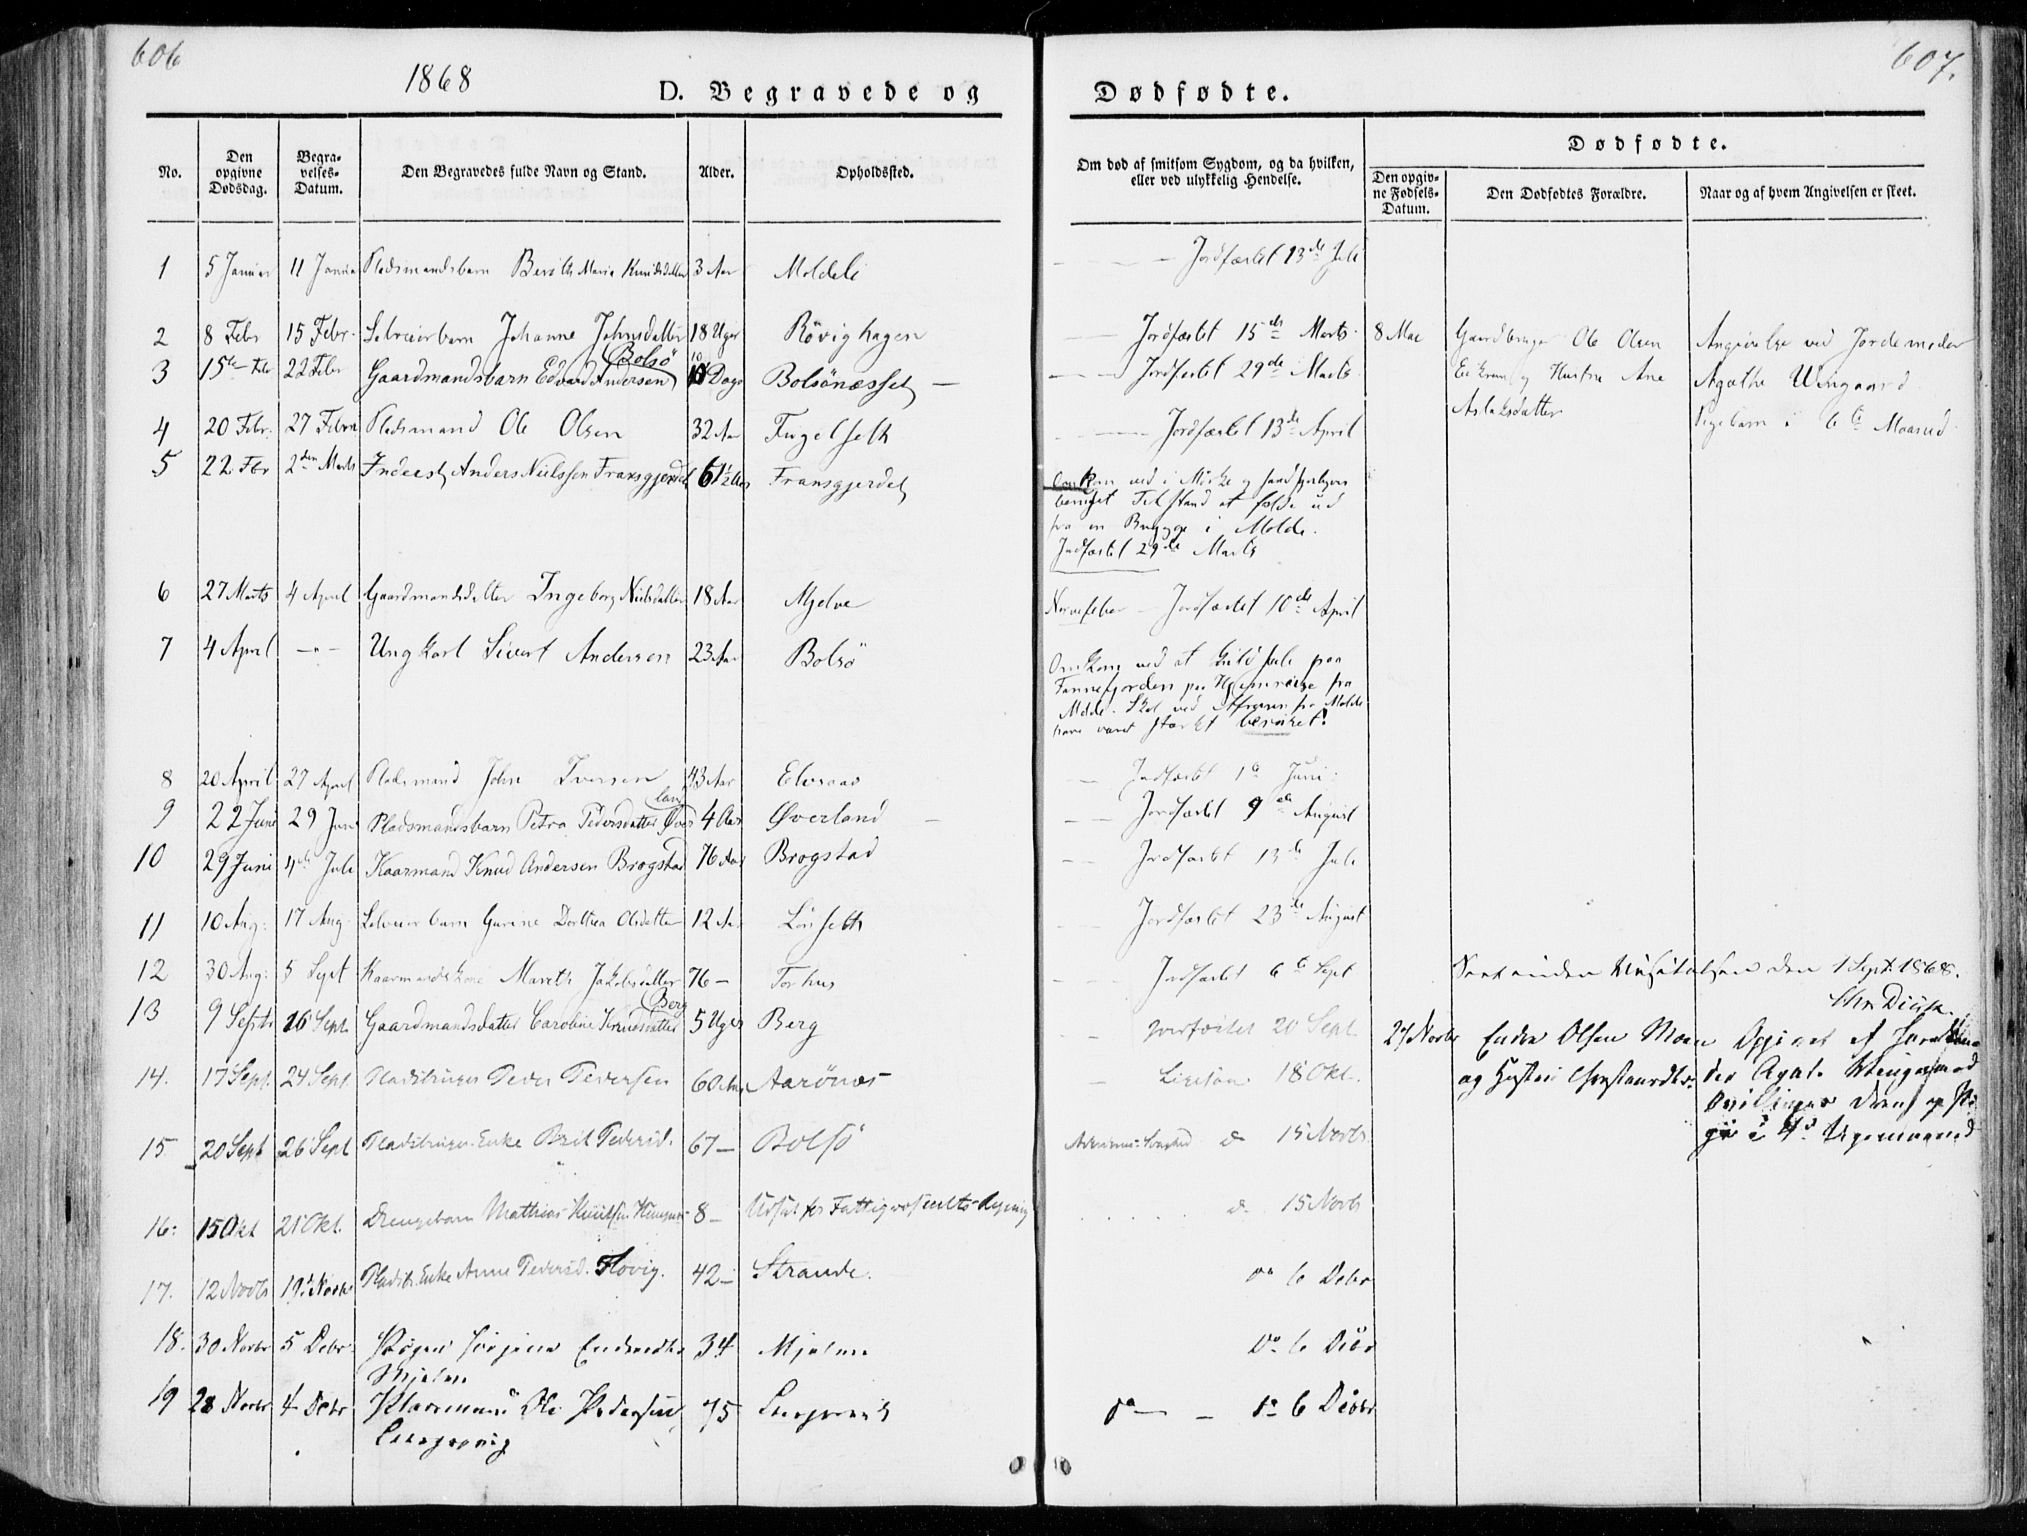 606
1868
D. Begravede og
Dødfødte.
607.
No.
Den opgivne Dødsdag.
Begravelses-Datum.
Den Begravedes fulde Navn og Stand.
Alder.
Opholdssted.
Om død af smitsom Sygdom, og da hvilken, eller ved ulykkelig Hendelse.
Dødfødte.
Den opgivne Fødsels-Datum.
Den Dødfødtes Forældre.
Naar og af hvem Angivelsen er skeet.
1 5 Januar 11 Januar Pladsmandsbarn Berith Maria Knudsdatter 3 Aar Moldeli Jordfæstet 13de Juli
2 8 Febr 15 Febr. Selveierbarn Johanne Johnsdatter 18 Uger Rövighagen Jordfæstet 15de Marts
3 15de Febr 22 Febr Gaardmandsbarn Edvard Andersen Bolsö 10 Dage Bolsönæsset Jordfæstet 29de Marts
4 20 Febr. 27 Febru Pladsmand Ole Olsen 32 Aar Fugelseth Jordfæstet 13de April
5 22 Febr 2den Marts Inderst Anders Nielssen Fransgjerdet 61½ Aar Fransgjerdet
Omkom ved i Mörke og
Tilstand at falde ud
fra en Brygge i Molde.
Jordfæstet 29de Marts
8 Mai Gaardbruger Ole Olsen
og Hustru Ane
Aslaksdatter
Angivelse ved Jordemoder
Agathe Wingaard
Pigebarn i 6te Maaned
6 27 Marts 4 April Gaardmandsdatter Ingeborg Nielsdatter 18 Aar Mjelve Nervefeber Jordfæstet 10de April
7 4 April -"- Ungkarl Sivert Andersen 23 Aar Bolsö
Omkom ved at paa
Fannefjorden paa Hjemreise fra
Molde. Skal ved fra Molde
have været stærkt beruset!
8 20 April 27 April Pladsmand John Iversen 43 Aar Elvsaas Jordfæstet 1te Juni
9 22 Juni 29 Juni Pladsmandsbarn Petra Pedersdatter Överland 4 Aar Øverland Jordfæstet 9de August
10 29 Juni 4de Juli Kaarmand Knud Andersen Brogstad 76 Aar Brogstad Jordfæstet 13de Juli
11 10 Aug: 17 Aug Selveierbarn Gurine Dorthea Olsdatter 12 Aar Lönseth Jordfæstet 23de August
12 30 Aug: 5 Sept Kaarmandskone Mareth Jakobsdatter 76 – Torhus Jordfæstet 6te Sept
den 1 Sept 1868.
13 9 Septr 16 Sept. Gaardmandsdatter Caroline Knudsdatter Berg 5 Uger Berg Jordfæstet 20 Sept.
14. 17 Sept. 24 Sept. Pladsbruger Peder Pedersen 60 Aar Aarönes Ligesaa 18 Okt.
15 20 Sept 26 Sept Pladsbruger Enke Brit Pedersd. 67 – Bolsö do 15 Novb
27 Novbr Endre Olsen Moen
og Hustru
Opgivet af
Agate Wingaard
Tvillinger Dreng og
16: 15 Okt 21 Okt. Drengebarn Mathias Knudsen 8 – Udsat for Fattigvæsenets Regning do 15 Novb
17. 12 Novb 19de Novbr Pladsbr. Enke Anne Pedersd. Flovig. 42 – Strande. do 6 Debr
18. 30 Novbr 5 Debr. Pigen Jörgine Endresdtr 34 Mjelve Do 6 Decbr
Mjelve
19 28 Novbr 4 Debr Ole Pedersen 75 do 6 Decbr